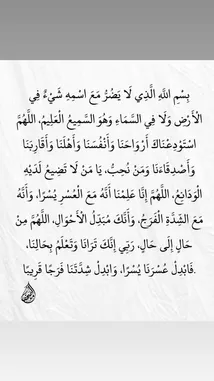 بِسْمِ اللَّهِ الَّذِي لَا يَضُرُّ مَعَ اسْمِهِ شَيْءٌ فِي
الْأَرْضِ وَلَا فِي السَّمَاءِ وَهُوَ السَّمِيعُ الْعَلِيمُ، اللَّهُمَّ
اسْتَوْدَعْنَاكَ أَرْوَاحَنَا وَأَنْفُسَنَا وَأَهْلَنَا وَأَقَارِبَنَا
وَأَصْدِقَاءَنَا وَمَنْ نُحِبُّ، يَا مَنْ لَا تَضِيعُ لَدَيْهِ
الْوَدَائِعُ، اللَّهُمَّ إِنَّا عَلِمْنَا أَنَّهُ مَعَ الْعُسْرِ يُسْرًا، وَأَنَّهُ
مَعَ الشِّدَّةِ الْفَرَجُ، وَأَنَّكَ مُبَدِّلُ الْأَحْوَالِ، اللَّهُمَّ مِنْ
حَالٍ إِلَى حَالٍ، رَبِّي إِنَّكَ تَرَانَا وَتَعْلَمُ بِحَالِنَا،
فَابْدِلْ عُسْرَنَا يُسْرًا، وَابْدِلْ شِدَّتَنَا فَرَجًا قَرِيبًا.